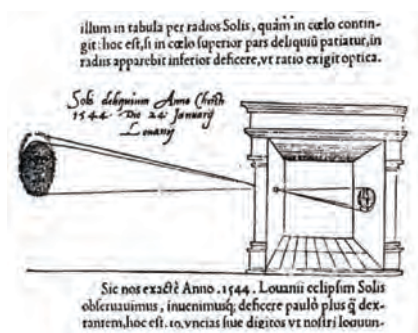 illum in tabula per radios Solis, quàm in cœlo contin-
git: hoc eſt, ſi in cœlo ſuperior pars deliquiũ patiatur, in
radiis apparebit inferior deficere, vt ratio exigit optica.
Solis deliquium Anno Chriſti
1544. Die 24: Januarij
Louanij
Sic nos exactè Anno .1544. Louanii eclipſim Solis
obſeruauimus, inuenimusq; deficere paulò plus q̃ dex-
tantem, hoc eſt .10. vncias ſiue digitos vt noſtri loquun-